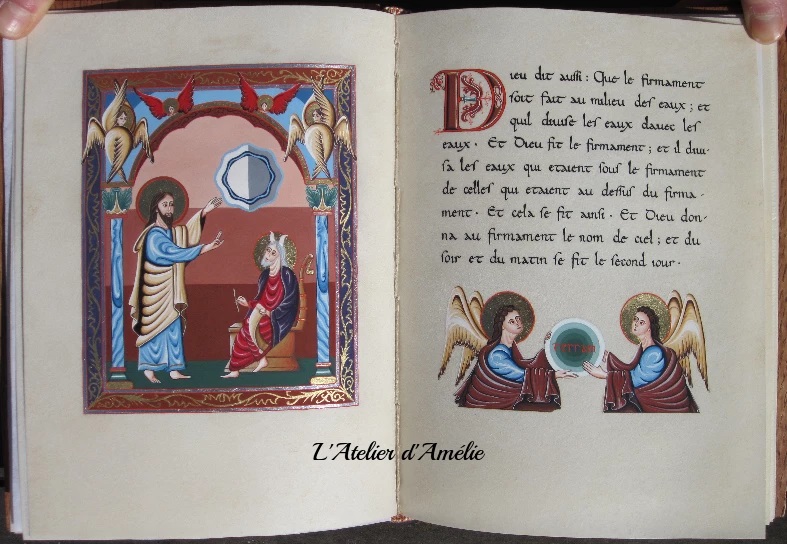 Dieu dit aussi : Que le firmament
soit fait au milieu des eaux ; et
quil divise les eaux davec les
eaux . Et Dieu fit le firmament ; et il divi-
sa les eaux qui etaient sous le firmament
de celles qui etaient au dessus du firma -
ment . Et cela se fit ainsi . Et Dieu don-
na au firmament le nom de ciel ; et du
soir et du matin se fit le second iour .
terram
L'Atelier d'Amélie